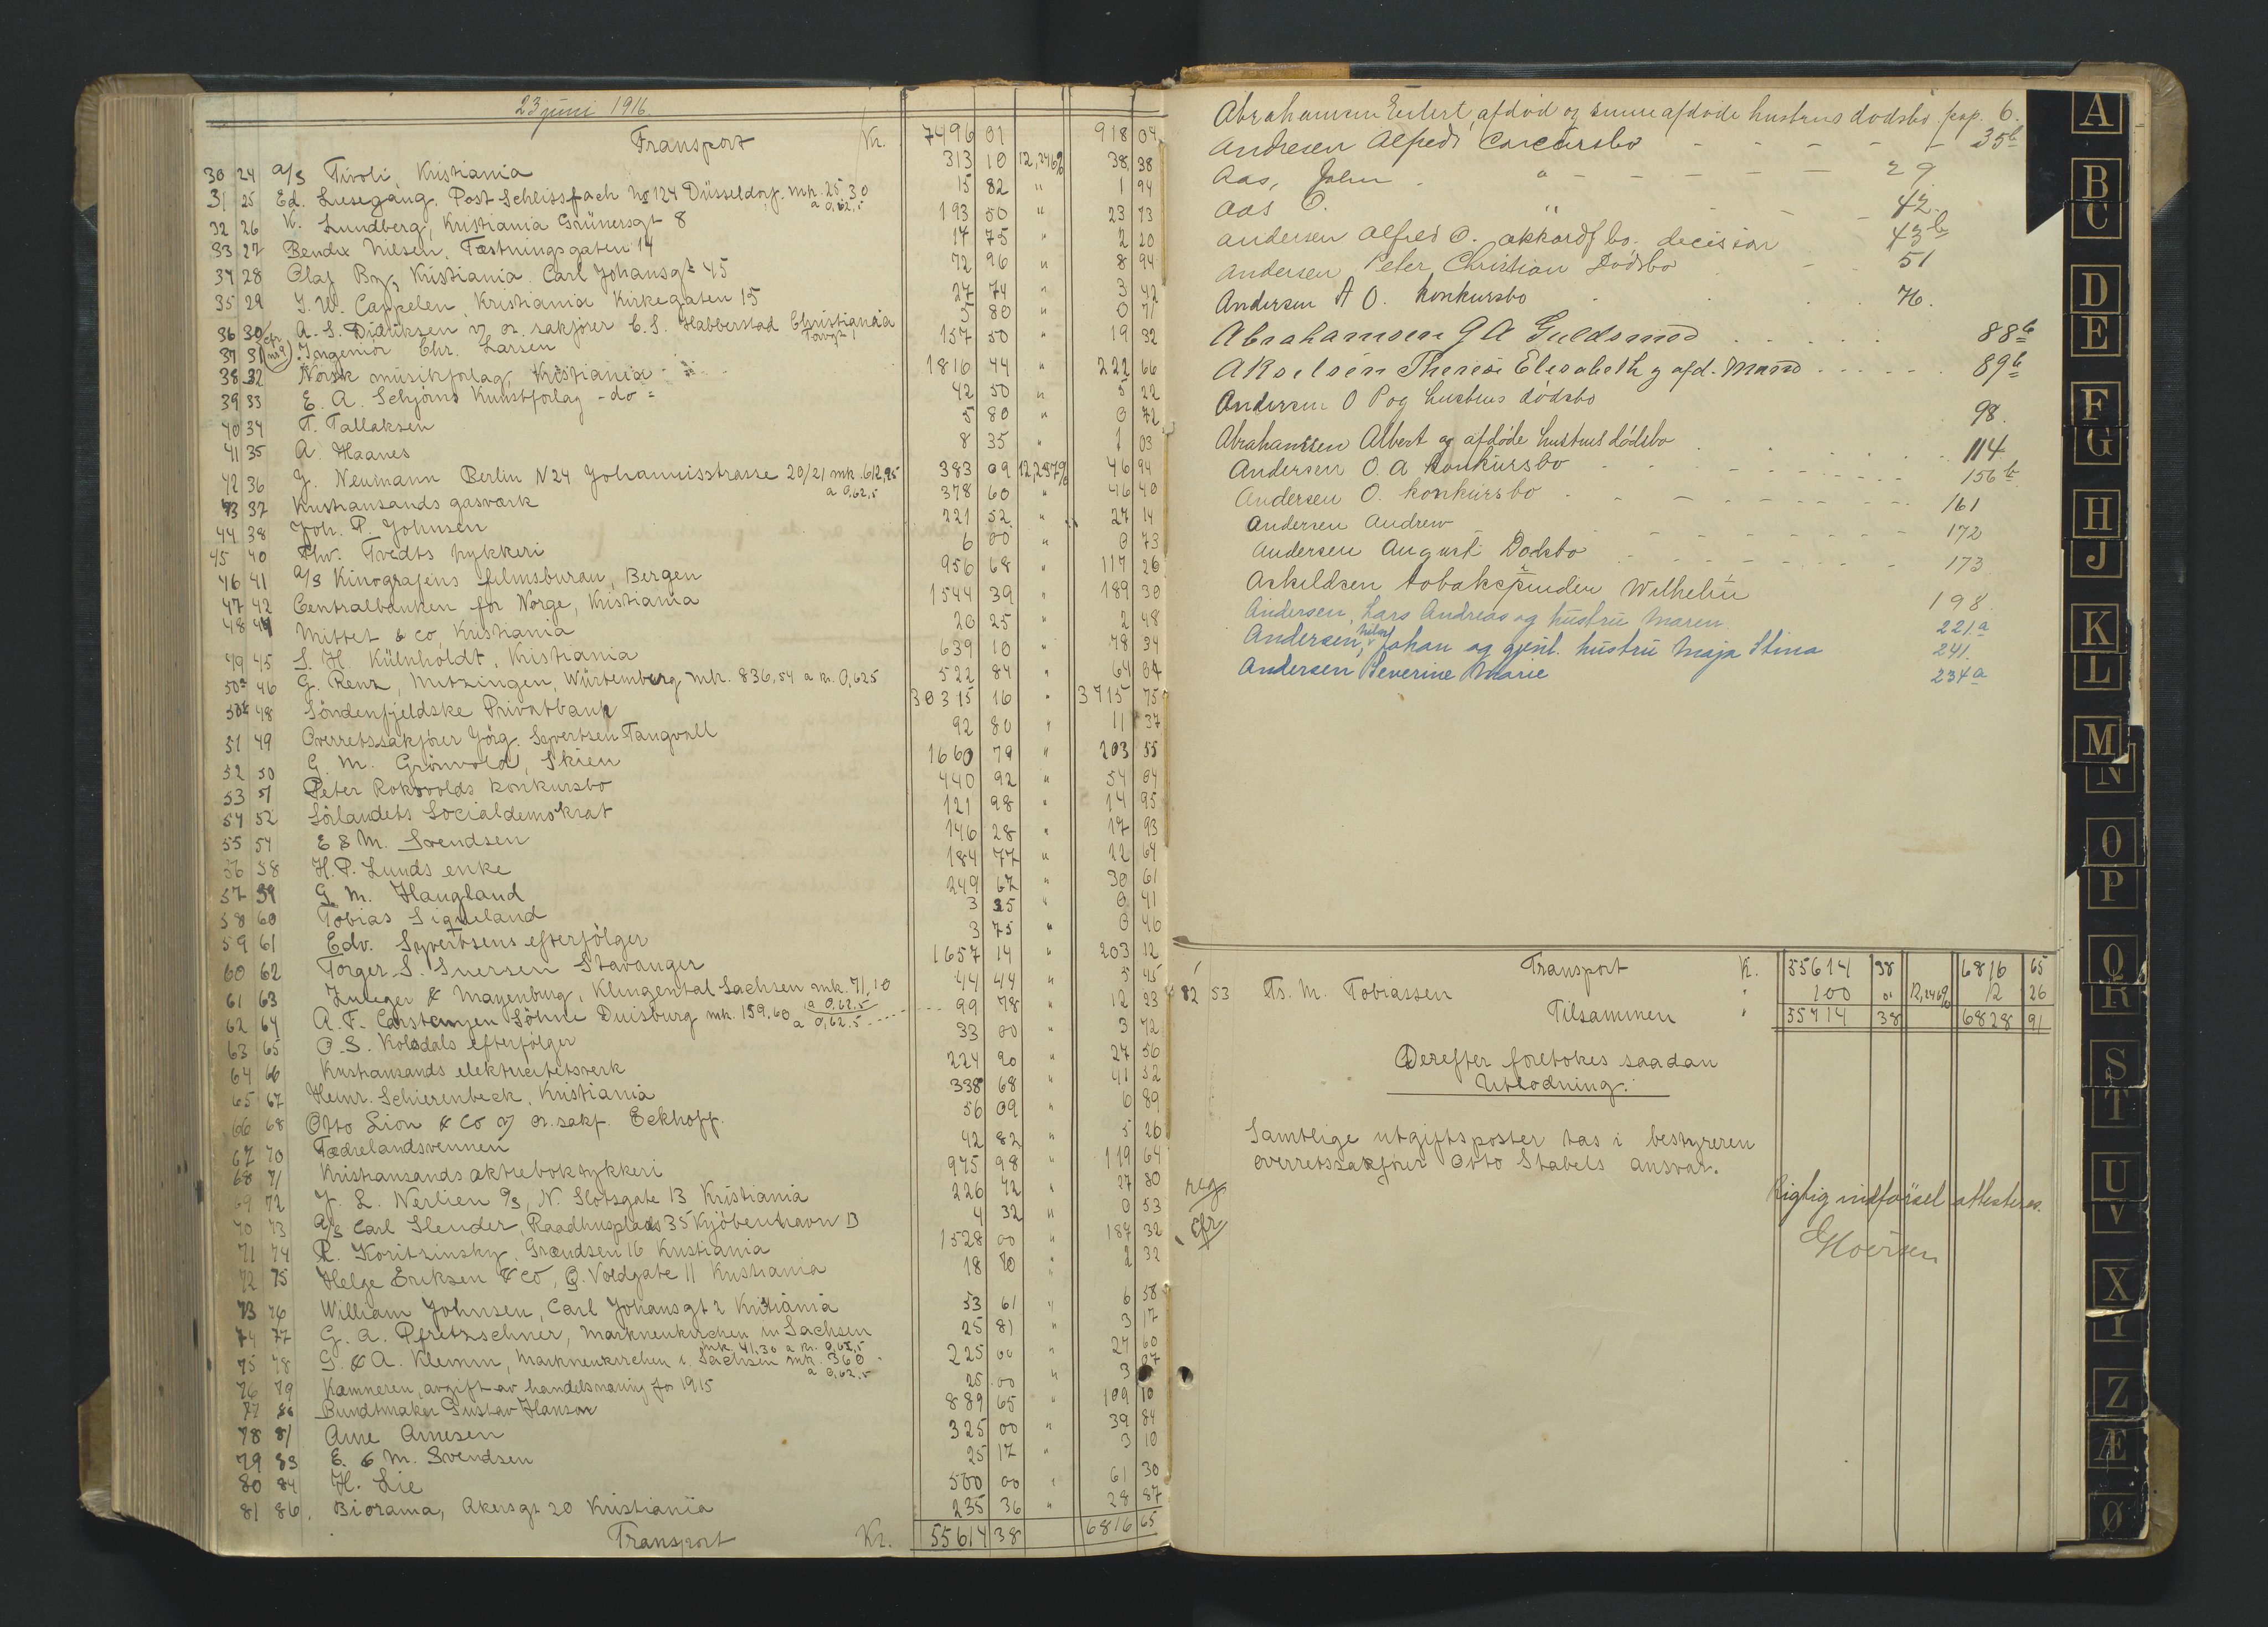 23 juni 1916.
Transport Kr. 7496 01 918 04
30 24 A/S Tivoli, Kristiania 313 10 12,246% 38 38
31 25 Ed. Liesegang, Post Schliessfach No 124 Düsseldorf. mk. 25,30 a 0,62,5 15 82 " 1 94
32 26 K. Lundberg, Kristiania Grünersgt 8 193 50 " 23 73
33 27 Bendix Nilsen, Fæstningsgaten 14 17 75 " 2 20
34 28 Olaf By, Kristiania Carl Johansgt 45 72 96 " 8 94
35 29 J. W. Cappelen, Kristiania Kirkegaten 15 27 74 " 3 42
36 30 A. S. Didriksen v/ or. sakfører C. S. Habberstad Christiania Torvgt 1 5 80 " 0 71
37 31 (cfr nr 9) Ingeniör Chr. Larsen 157 50 " 19 32
38 32 Norsk musikforlag, Kristiania 1816 44 " 222 66
39 33 E. A. Schjørns Kunstforlag - do - 42 50 " 5 22
40 34 T. Tallaksen 5 80 " 0 72
41 35 A. Haanes 8 35 " 1 03
42 36 J. Neumann Berlin N 24 Johannisstrasse 20/21 mk. 612,95 a 0,62,5 383 09 12,257% 46 94
43 37 Kristiansands gasværk 378 60 " 46 40
44 38 Joh. P. Johnsen 221 52 " 27 14
45 40 Thv. Tvedts trykkeri 6 00 " 0 73
46 41 A/S Kinografens filmsbureau, Bergen 956 68 " 117 26
47 42 Centralbanken for Norge, Kristiania 1544 39 " 189 30
48 44 Mittet & Co, Kristiania 20 25 " 2 48
49 45 S. H. Külnholdt, Kristiania 639 10 " 78 34
50a 46 G. Renz, Metzingen, Würtemberg mk. 836,54 a kr. 0,625 522 84 " 64 04
50b 48 Söndenfjeldske Privatbank 30315 16 " 3715 75
51 49 Overretssakfører Jörg. Syvertsen Tangvall 92 80 " 11 37
52 50 G. M. Grönvold, Skien 1660 79 " 203 55
53 51 Peter Roksvolds konkursbo 440 92 " 54 04
54 52 Sörlandets Socialdemokrat 121 98 " 14 95
55 54 E & M. Svendsen 146 28 " 17 93
56 58 H. P. Lunds enke 184 77 " 22 64
57 59 G. M. Haugland 249 67 " 30 61
58 60 Tobias Sigueland 3 35 " 0 41
59 61 Edv. Syvertsens efterfölger 3 75 " 0 46
60 62 Torger S. Snersen Stavanger 1657 14 " 203 12
61 63 Zuleger & Mayenburg, Klingental Sachsen mk. 71,10 a 0,62,5 44 44 " 5 45
62 64 A. F. Carstanjen Söhne Duisburg mk. 159,60 a 0,62,5 99 78 " 12 23
63 65 O. S. Kolsdals efterfölger 33 00 " 3 72
64 66 Kristiansands elektricitetsverk 224 90 " 27 56
65 67 Heinr. Schierenbeck, Kristiania 338 68 " 41 52
66 68 Otto Lion & Co v/ or. sakf. Eckhoff. 56 09 " 6 89
67 70 Fædrelandsvennen 42 82 " 5 26
68 71 Kristiansands aktieboktrykkeri 975 98 " 119 64
69 72 J. L. Nerlien A/S, N. Slotsgate 13 Kristiania 226 42 " 27 80
70 73 A/S Carl Stender, Raadhusplads 35 Kjöbenhavn B 4 32 " 0 53
71 74 R. Koritzinsky, Grændsen 16 Kristiania 1528 00 " 187 32
72 75 Helge Eriksen & Co, Ö. Voldgate 11 Kristiania 18 90 " 2 32
73 76 William Johnsen, Carl Johansgt 2 Kristiania 53 61 " 6 58
74 77 G. A. Pfretzschner, Markneukirchen in Sachsen mk. 41,30 a kr. 0,62,5 25 81 " 3 17
75 78 G. & A. Klemm, Markneukirchen i. Sachsen mk. 360 a 0,62,5 225 00 " 27 60
76 79 Kæmneren, avgift av handelsnæring for 1915 25 00 " 3 07
77 80 Bundtmaker Gustav Hanson 889 65 " 109 10
78 81 Arne Arnesen 325 00 " 39 84
79 83 E. & M. Svendsen 25 17 " 3 10
80 84 H. Lie 500 00 " 61 30
81 86. Biorama, Akersgt 20 Kristiania 235 36 " 28 87
Transport Kr. 55614 38 6816 65
Abrahamsen Eilert, afdød og afdøde hustrus dødsbo. pag. 6.
Andresen Alfred Concursbo 35b
Aas, John " 29
Aas O. " 42.
Andersen Alfred O. akkordf bo. decision 43b
Andersen Peter Christian Dødsbo 51
Andersen A O. konkursbo 76.
Abrahamsen G A Guldsmed 88b
Akselsen Therese Elisabeth g afd. Mand 89b
Andersen O P og hustrus dødsbo 98.
Abrahamsen Albert og afdøde hustrus dødsbo 114
Andersen O. A konkursbo 156b
Andersen O. konkursbo 161
Andersen Andrew 172
Andersen August Dødsbo 173
Askildsen tobakspinder Wilhelm 198
Andersen, Lars Andreas og hustru Maren 221a
Andersen, Johan og gjenl. hustru Maja Stina 241.
Andersen Severine Marie 234a
Transport K. 55614 38 6816 65
82 53 Ts. M. Tobiassen " 100 00 12,246% 12 26
Tilsammen " 55714 38 6828 91
Derefter foretokes saadan
Utlodning:
Samtlige utgiftsposter tas i bestyreren
overretssakfører Otto Stabels ansvar.
Rigtig indförsel attesteres.
reg
cfr
A
B
C
D
E
F
G
H
J
K
L
M
N
O
P
Q
R
S
T
U
V
X
Y
Z
Æ
Ø